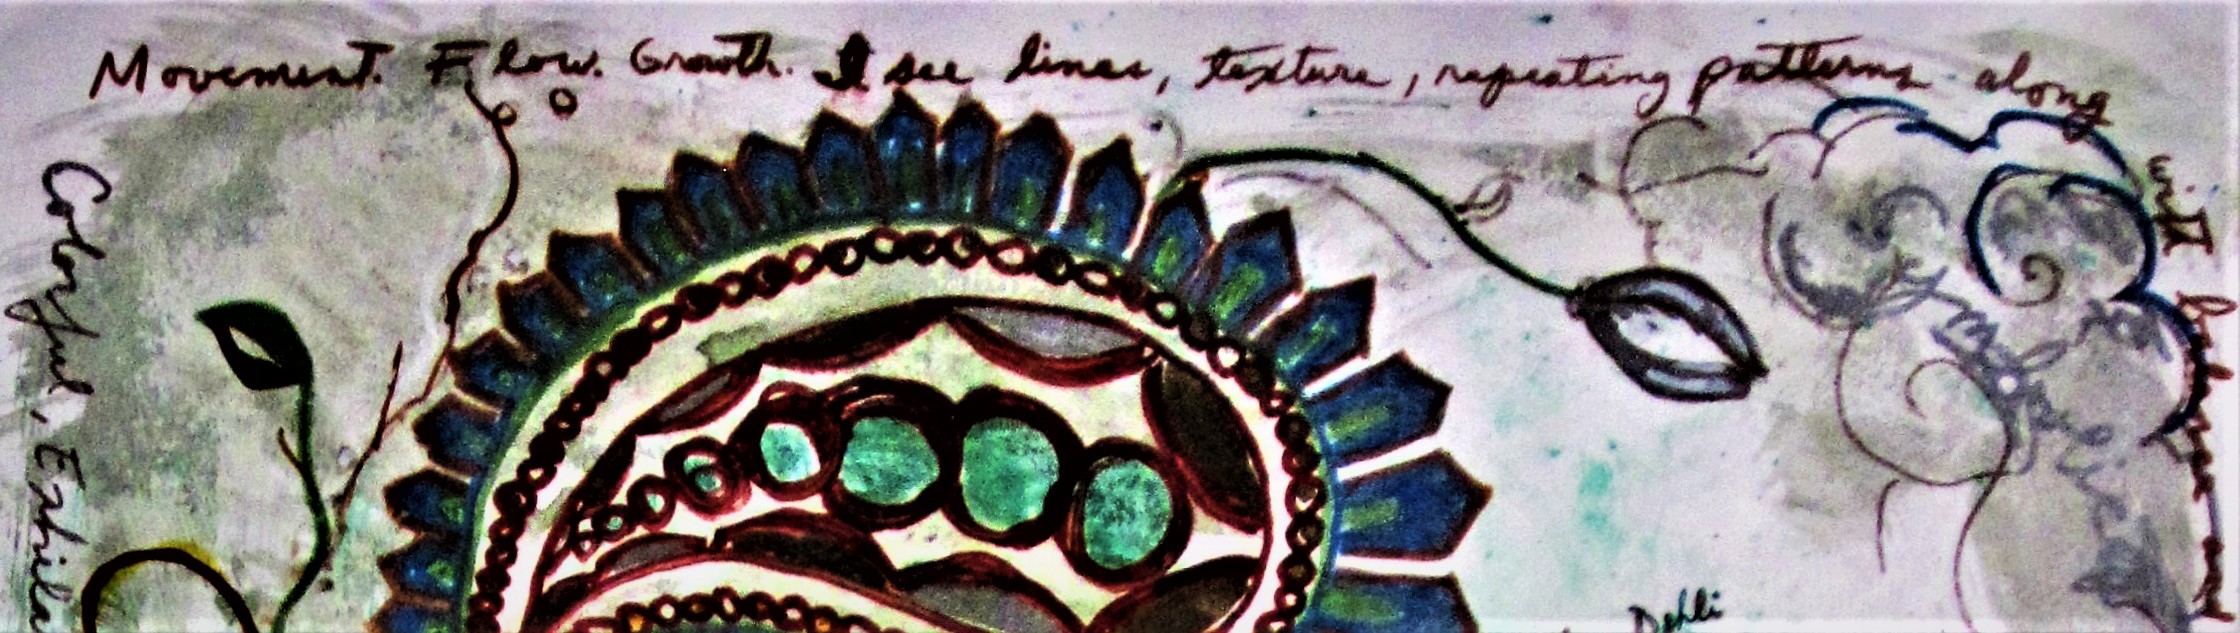 Movement. Flow. Growth. I see lines, texture, repeating patterns along
with
Colorful, Exhila
Dehli